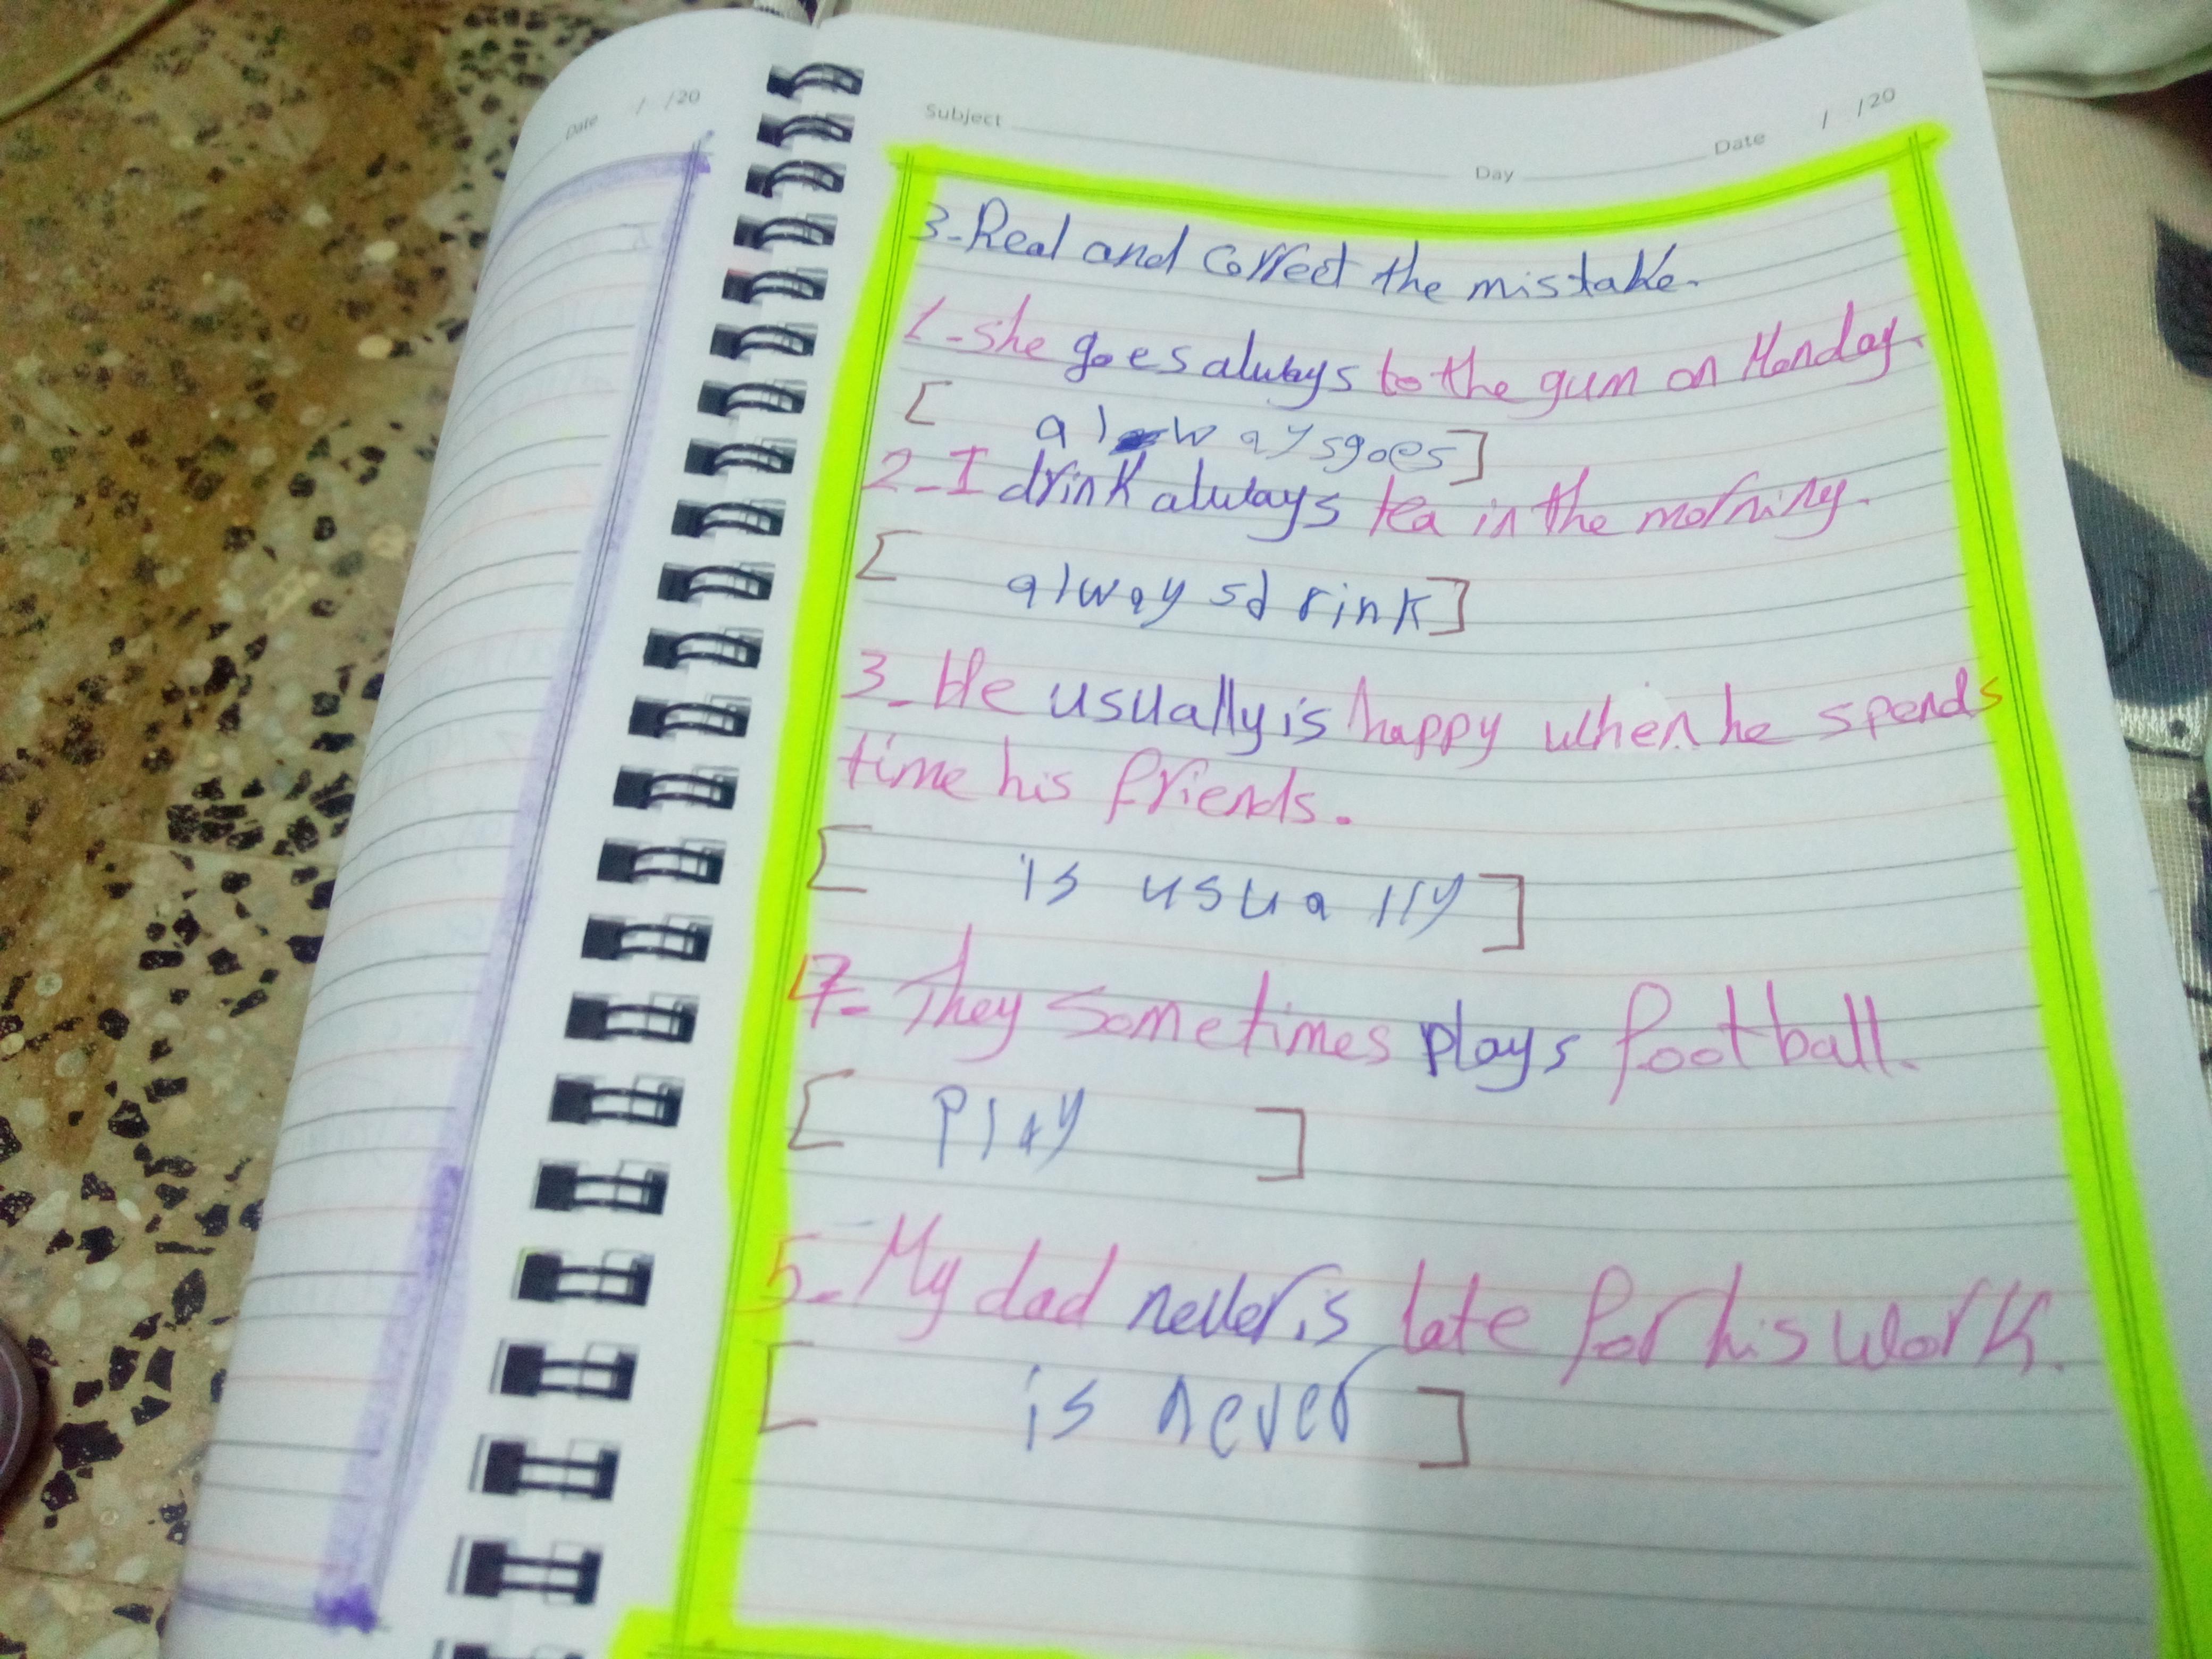 Date / /20
Subject Day Date / /20
3-Real and correct the mistake.
1-She goes always to the gum on Monday.
[ always goes]
2-I drink always tea in the morning.
[ always drink]
3-He usually is happy when he spends
time his friends.
[ is usually]
4-They sometimes plays football.
[ play ]
5-My dad never is late for his work.
[ is never ]